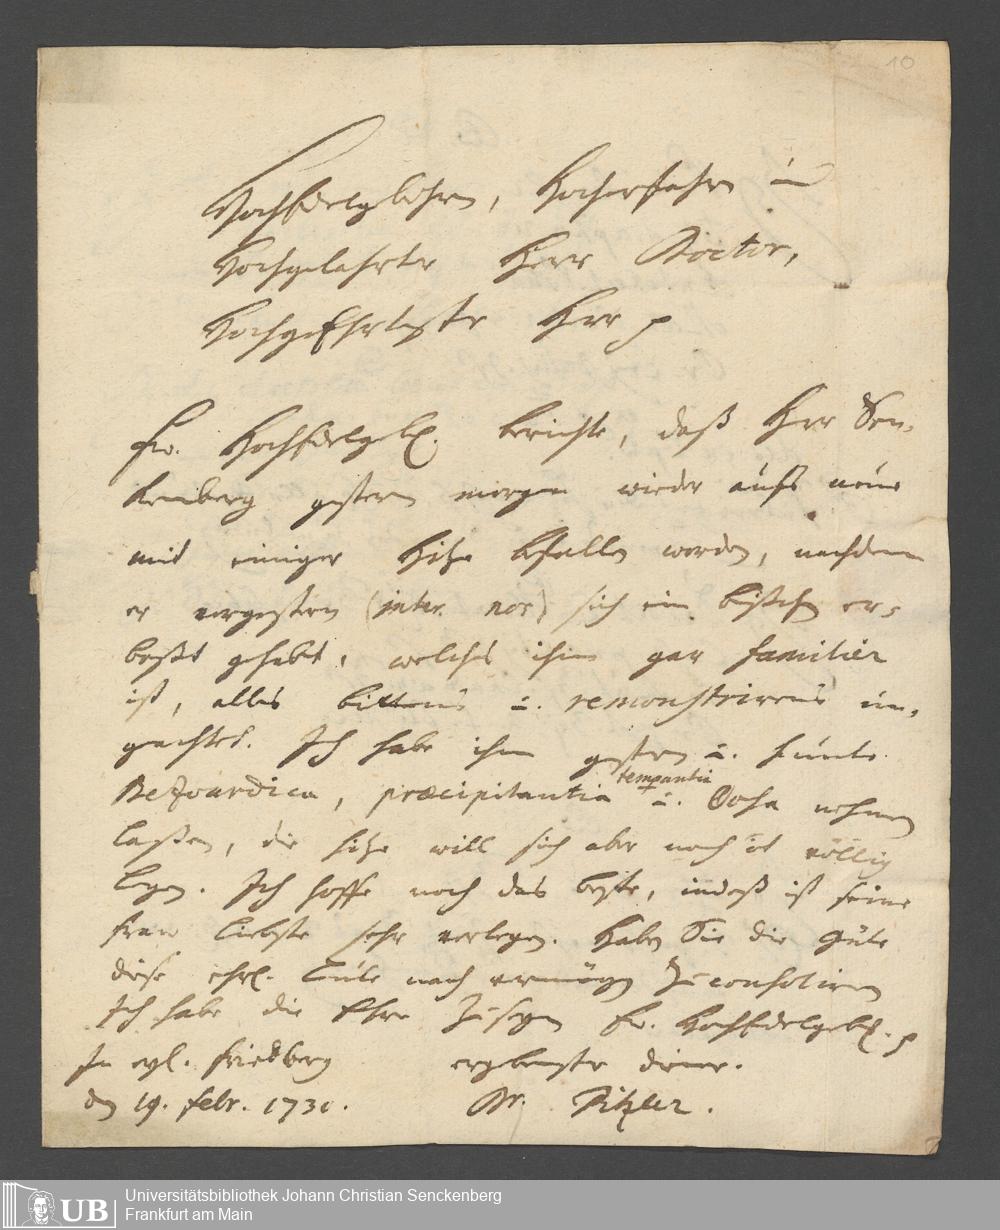 10
HochEdelgebohrn, Hocherfahrn u
Hochgelahrter Herr Doctor,
HochgeEhrtester Herr p
Ew. HochEdelgeb. berichte, daß Herr Sen-
kenberg gestern morgen wieder aufs neue
mit einiger Hitze befallen worden, nachdem
er vorgestern (inter nos) sich ein bißchen er-
boßt gehabt, welches ihm gar familier
ist, alles bittens u. remonstrirens un-
geachtet. Ich habe ihm gestern u. heute
Bezoardica, præcipitantia temperantia u. Dosa nehmen
laßen, die hitze will sich aber noch nicht völlig
legen. Ich hoffe noch das beste, indeß ist seine
frau Liebste sehr verlegen. Haben Sie die Güte
diese ehrl. Leute nach vermögen zu consoliren
Ich habe die Ehre zu seyn Ew. HochEdelgeb. p
In eyl. friedberg ergebenster diener.
den 19. febr. 1730. Dr. Pitzler.
Universitätsbibliothek Johann Christian Senckenberg
UB Frankfurt am Main